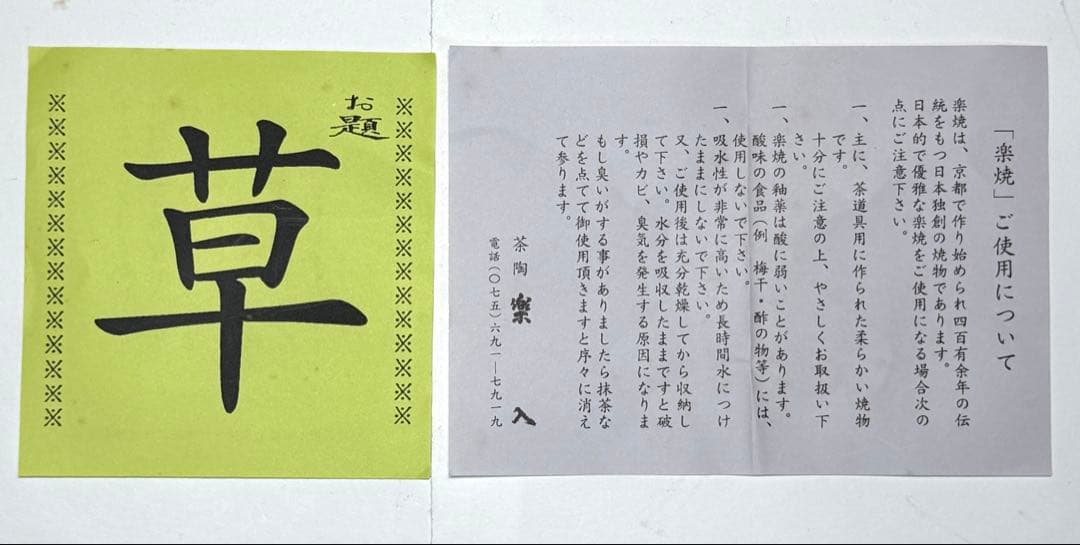 お題
草
※※※※※※※※※※※※※※
※※※※※※※※※※※※※※
「楽焼」ご使用について
楽焼は、京都で作り始められ四百有余年の伝
統をもつ日本独創の焼物であります。
日本的で優雅な楽焼をご使用になる場合次の
点にご注意下さい。
一、主に、茶道具用に作られた柔らかい焼物
です。
十分にご注意の上、やさしくお取扱い下
さい。
一、楽焼の釉薬は酸に弱いことがあります。
酸味の食品(例 梅干・酢の物等)には、
使用しないで下さい。
一、吸水性が非常に高いため長時間水につけ
たままにしないで下さい。
又、ご使用後は充分乾燥してから収納し
て下さい。水分を吸収したままですと破
損やカビ、臭気を発生する原因になりま
す。
もし臭いがする事がありましたら抹茶な
どを点てて御使用頂きますと序々に消え
て参ります。
茶陶 楽入
電話(〇七五)六九一―七九一九